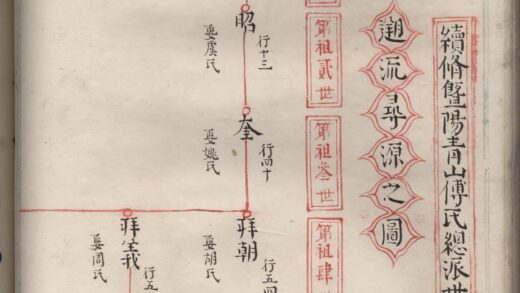 續脩暨陽青山傅氏總派世
遡流尋源之圖
第祖貳世
昭
行十三
娶虞氏
第祖叁世
奎
行四十
娶姚氏
第祖肆世
拜朝
行五四
娶胡氏
拜堂
行五
娶周氏